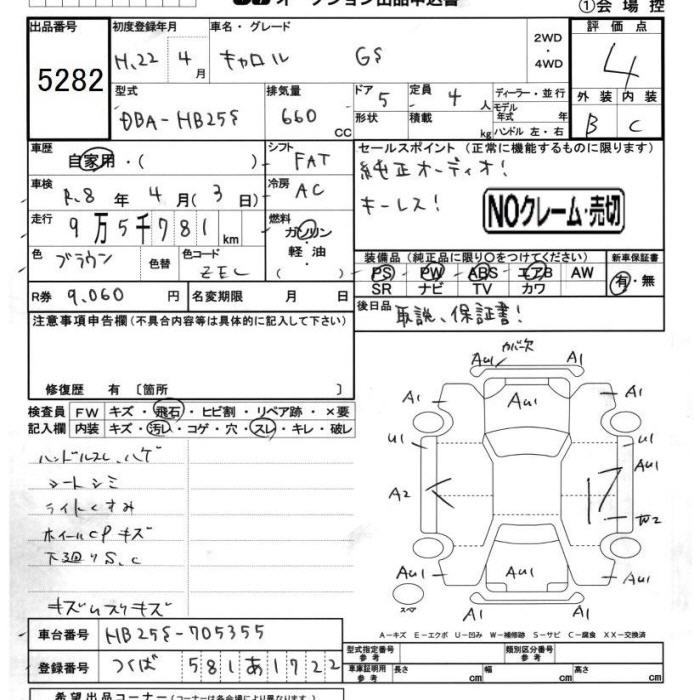 オークション出品申込書
①会場控
出品番号
5282
初度登録年月
H.22 4月
車名・グレード
キャロル GS
2WD
・
4WD
評価点
4
型式
DBA-HB25S
排気量
660 cc
ドア 5
形状
定員 4 人
積載 kg
ディーラー・並行
モデル年式 年
ハンドル 左・右
外装 内装
B C
車歴
自家用・( )
シフト
FAT
車検
R.8年4月(3日)
冷房
AC
走行
9万5千781km
燃料
ガソリン
軽・油
( )
色
ブラウン
色替
色コード
ZEC
R券 9,060円
名変期限 月 日
セールスポイント(正常に機能するものに限ります)
純正オーディオ!
キーレス!
NOクレーム・売切
装備品(純正品に限り○をつけてください)
新車保証書
PS PW ABS エアB AW
SR ナビ TV カワ
有・無
後日品
取説、保証書!
注意事項申告欄(不具合内容等は具体的に記入して下さい)
修復歴 有〔箇所 〕
検査員 FW キズ・飛石・ヒビ割・リペア跡・×要
記入欄 内装 キズ・汚れ・コゲ・穴・スレ・キレ・破レ
ハンドルスレ、ハゲ
シートシミ
ライトくすみ
ホイールCPキズ
下廻りS、C
キズムスリキズ
カバー欠
AU1 A1
A1 AU1 A1
U1 U1
AU1
A2
W2
AU1 AU1 AU1
スペア A1
A-キズ E-エクボ U-凹み W-補修跡 S-サビ C-腐食 XX-交換済
車台番号 HB25S-705355
登録番号 つくば 581 あ 1722
型式指定番号 参考
類別区分番号 参考
車庫証明用 参考
長さ cm 幅 cm 高さ cm
希望出品コーナー(コーナー名は各会場により異なります)